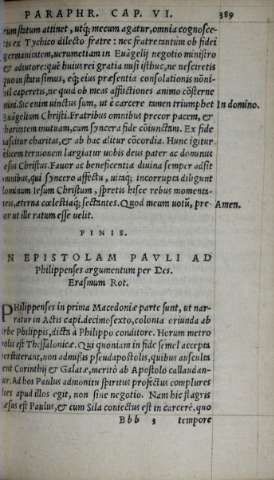 PARAPHR. CAP. VI. 389
rium statum attinet, utq; mecum agatur, omnia cognosce-
tis ex Tychico dilecto fratre: nec fratre tantum ob fidei
germanitatem, uerumetiam in Euãgelij negotio ministro
& adiutore: quẽ huius rei gratia misi isthuc, ne nesciretis
quo in statu simus, eq; eius præsentia consolationis nõni-
hil caperetis, ne quid ob meas afflictiones animo cõsterne
mini. Sic enim uinctus sum, ut è carcere tamen triumphet In domino.
Euãgelium Christi. Fratribus omnibus precor pacem, &
charitatem mutuam, cum syncera fide cõiunctam. Ex fide
nascitur charitas, & ab hac alitur cõcordia. Hunc igitur
ternionem largiatur uobis deus pater ac dominus
Iesus Christus. Fauor ac beneficentia diuina semper adsit
omnibus, qui syncero affectu, uitaq; incorrupta diligunt
dominum Iesum Christum, spretis hisce rebus momenta-
neis, æterna cœlestiaq; sectantes. Quod meum uotũ, pre- Amen.
or ut ille ratum esse uelit.
FINIS.
IN EPISTOLAM PAVLI AD
Philippenses argumentum per Des.
Erasmum Rot.
Philippenses in prima Macedoniæ parte sunt, ut nar-
ratur in Actis capi. decimosexto, colonia oriunda ab
urbe Philippis, dicta à Philippo conditore. Horum metro
polis est Thessalonicæ. Qui quoniam in fide semel accepta
perstiterant, non admissis pseudapostolis, quibus auscultã
ent Corinthij & Galatæ, meritò ab Apostolo collaudan-
tur. Ad hos Paulus admonitu spiritus profectus complures
dies apud illos egit, non sine negotio. Nam hic flagris
cæsus est Paulus, & cum Sila coniectus est in carcerẽ, quo
Bbb 5 tempore